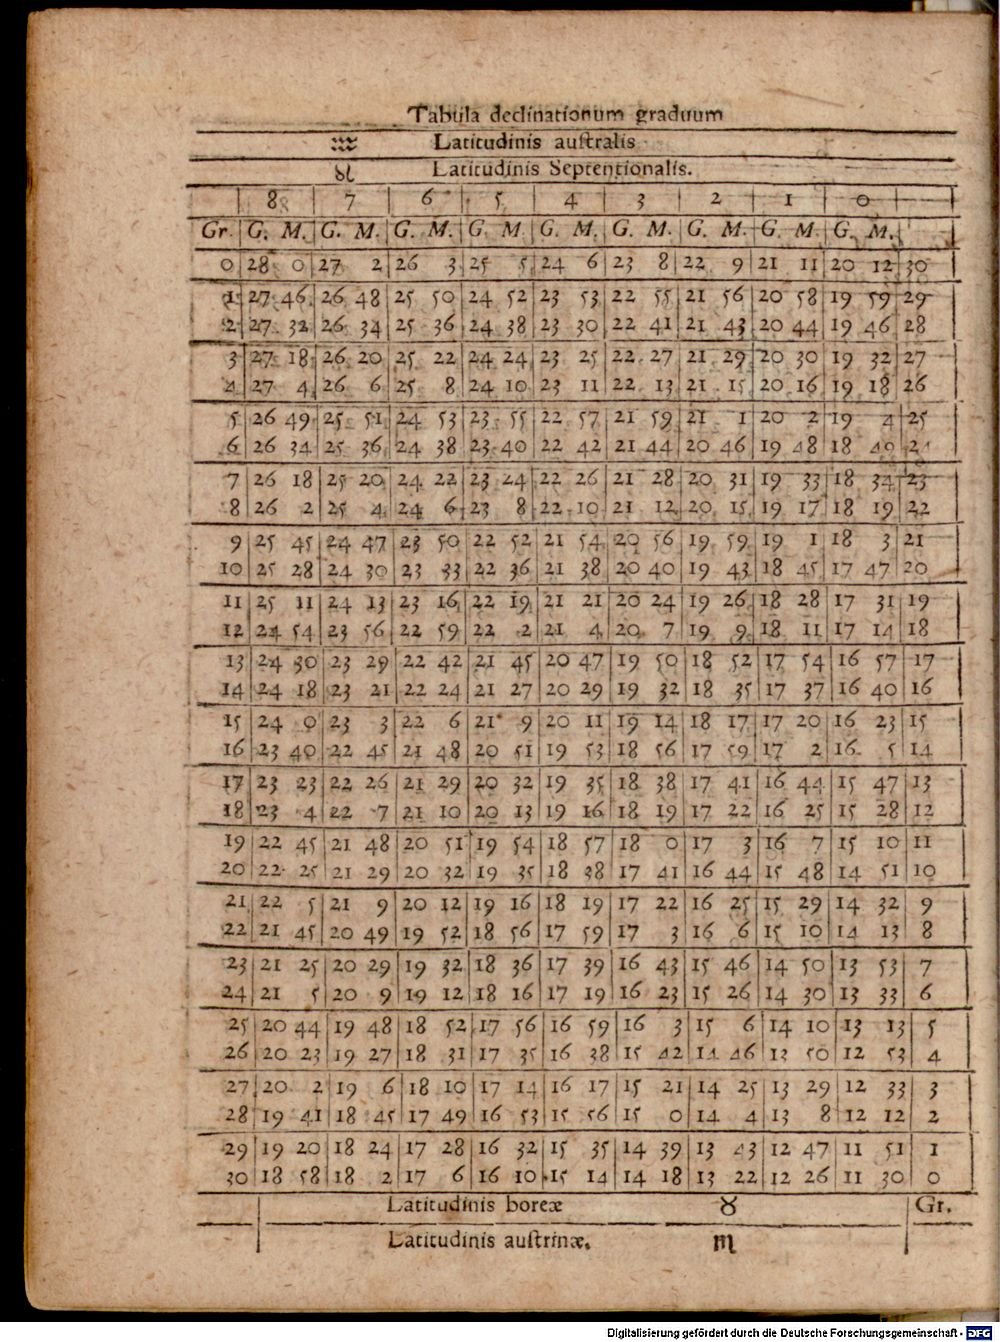 Tabula declinationum graduum
♒ Latitudinis auſtralis
♌ Latitudinis Septentionalis.
8 7 6 5 4 3 2 1 0
Gr. G. M. G. M. G. M. G. M. G. M. G. M. G. M. G. M. G. M.
0 28 0 27 2 26 3 25 5 24 6 23 8 22 9 21 11 20 12 30
1 27 46 26 48 25 50 24 52 23 53 22 55 21 56 20 58 19 59 29
2 27 32 26 34 25 36 24 38 23 30 22 41 21 43 20 44 19 46 28
3 27 18 26 20 25 22 24 24 23 25 22 27 21 29 20 30 19 32 27
4 27 4 26 6 25 8 24 10 23 11 22 13 21 15 20 16 19 18 26
5 26 49 25 51 24 53 23 55 22 57 21 59 21 1 20 2 19 4 25
6 26 34 25 36 24 38 23 40 22 42 21 44 20 46 19 48 18 49 24
7 26 18 25 20 24 22 23 24 22 26 21 28 20 31 19 33 18 34 23
8 26 2 25 4 24 6 23 8 22 10 21 12 20 15 19 17 18 19 22
9 25 45 24 47 23 50 22 52 21 54 20 56 19 59 19 1 18 3 21
10 25 28 24 30 23 33 22 36 21 38 20 40 19 43 18 45 17 47 20
11 25 11 24 13 23 16 22 19 21 21 20 24 19 26 18 28 17 31 19
12 24 54 23 56 22 59 22 2 21 4 20 7 19 9 18 11 17 14 18
13 24 30 23 29 22 42 21 45 20 47 19 50 18 52 17 54 16 57 17
14 24 18 23 21 22 24 21 27 20 29 19 32 18 35 17 37 16 40 16
15 24 0 23 3 22 6 21 9 20 11 19 14 18 17 17 20 16 23 15
16 23 40 22 45 21 48 20 51 19 53 18 56 17 59 17 2 16 5 14
17 23 23 22 26 21 29 20 32 19 35 18 38 17 41 16 44 15 47 13
18 23 4 22 7 21 10 20 13 19 16 18 19 17 22 16 25 15 28 12
19 22 45 21 48 20 51 19 54 18 57 18 0 17 3 16 7 15 10 11
20 22 25 21 29 20 32 19 35 18 38 17 41 16 44 15 48 14 51 10
21 22 5 21 9 20 12 19 16 18 19 17 22 16 25 15 29 14 32 9
22 21 45 20 49 19 52 18 56 17 59 17 3 16 6 15 10 14 13 8
23 21 25 20 29 19 32 18 36 17 39 16 43 15 46 14 50 13 53 7
24 21 5 20 9 19 12 18 16 17 19 16 23 15 26 14 30 13 33 6
25 20 44 19 48 18 52 17 56 16 59 16 3 15 6 14 10 13 13 5
26 20 23 19 27 18 31 17 35 16 38 15 42 14 46 13 50 12 53 4
27 20 2 19 6 18 10 17 14 16 17 15 21 14 25 13 29 12 33 3
28 19 41 18 45 17 49 16 53 15 56 15 0 14 4 13 8 12 12 2
29 19 20 18 24 17 28 16 32 15 35 14 39 13 43 12 47 11 51 1
30 18 58 18 2 17 6 16 10 15 14 14 18 13 22 12 26 11 30 0
Latitudinis boreæ ♉ Gr.
Latitudinis auſtrinæ. ♏
Digitalisierung gefördert durch die Deutsche Forschungsgemeinschaft - DFG